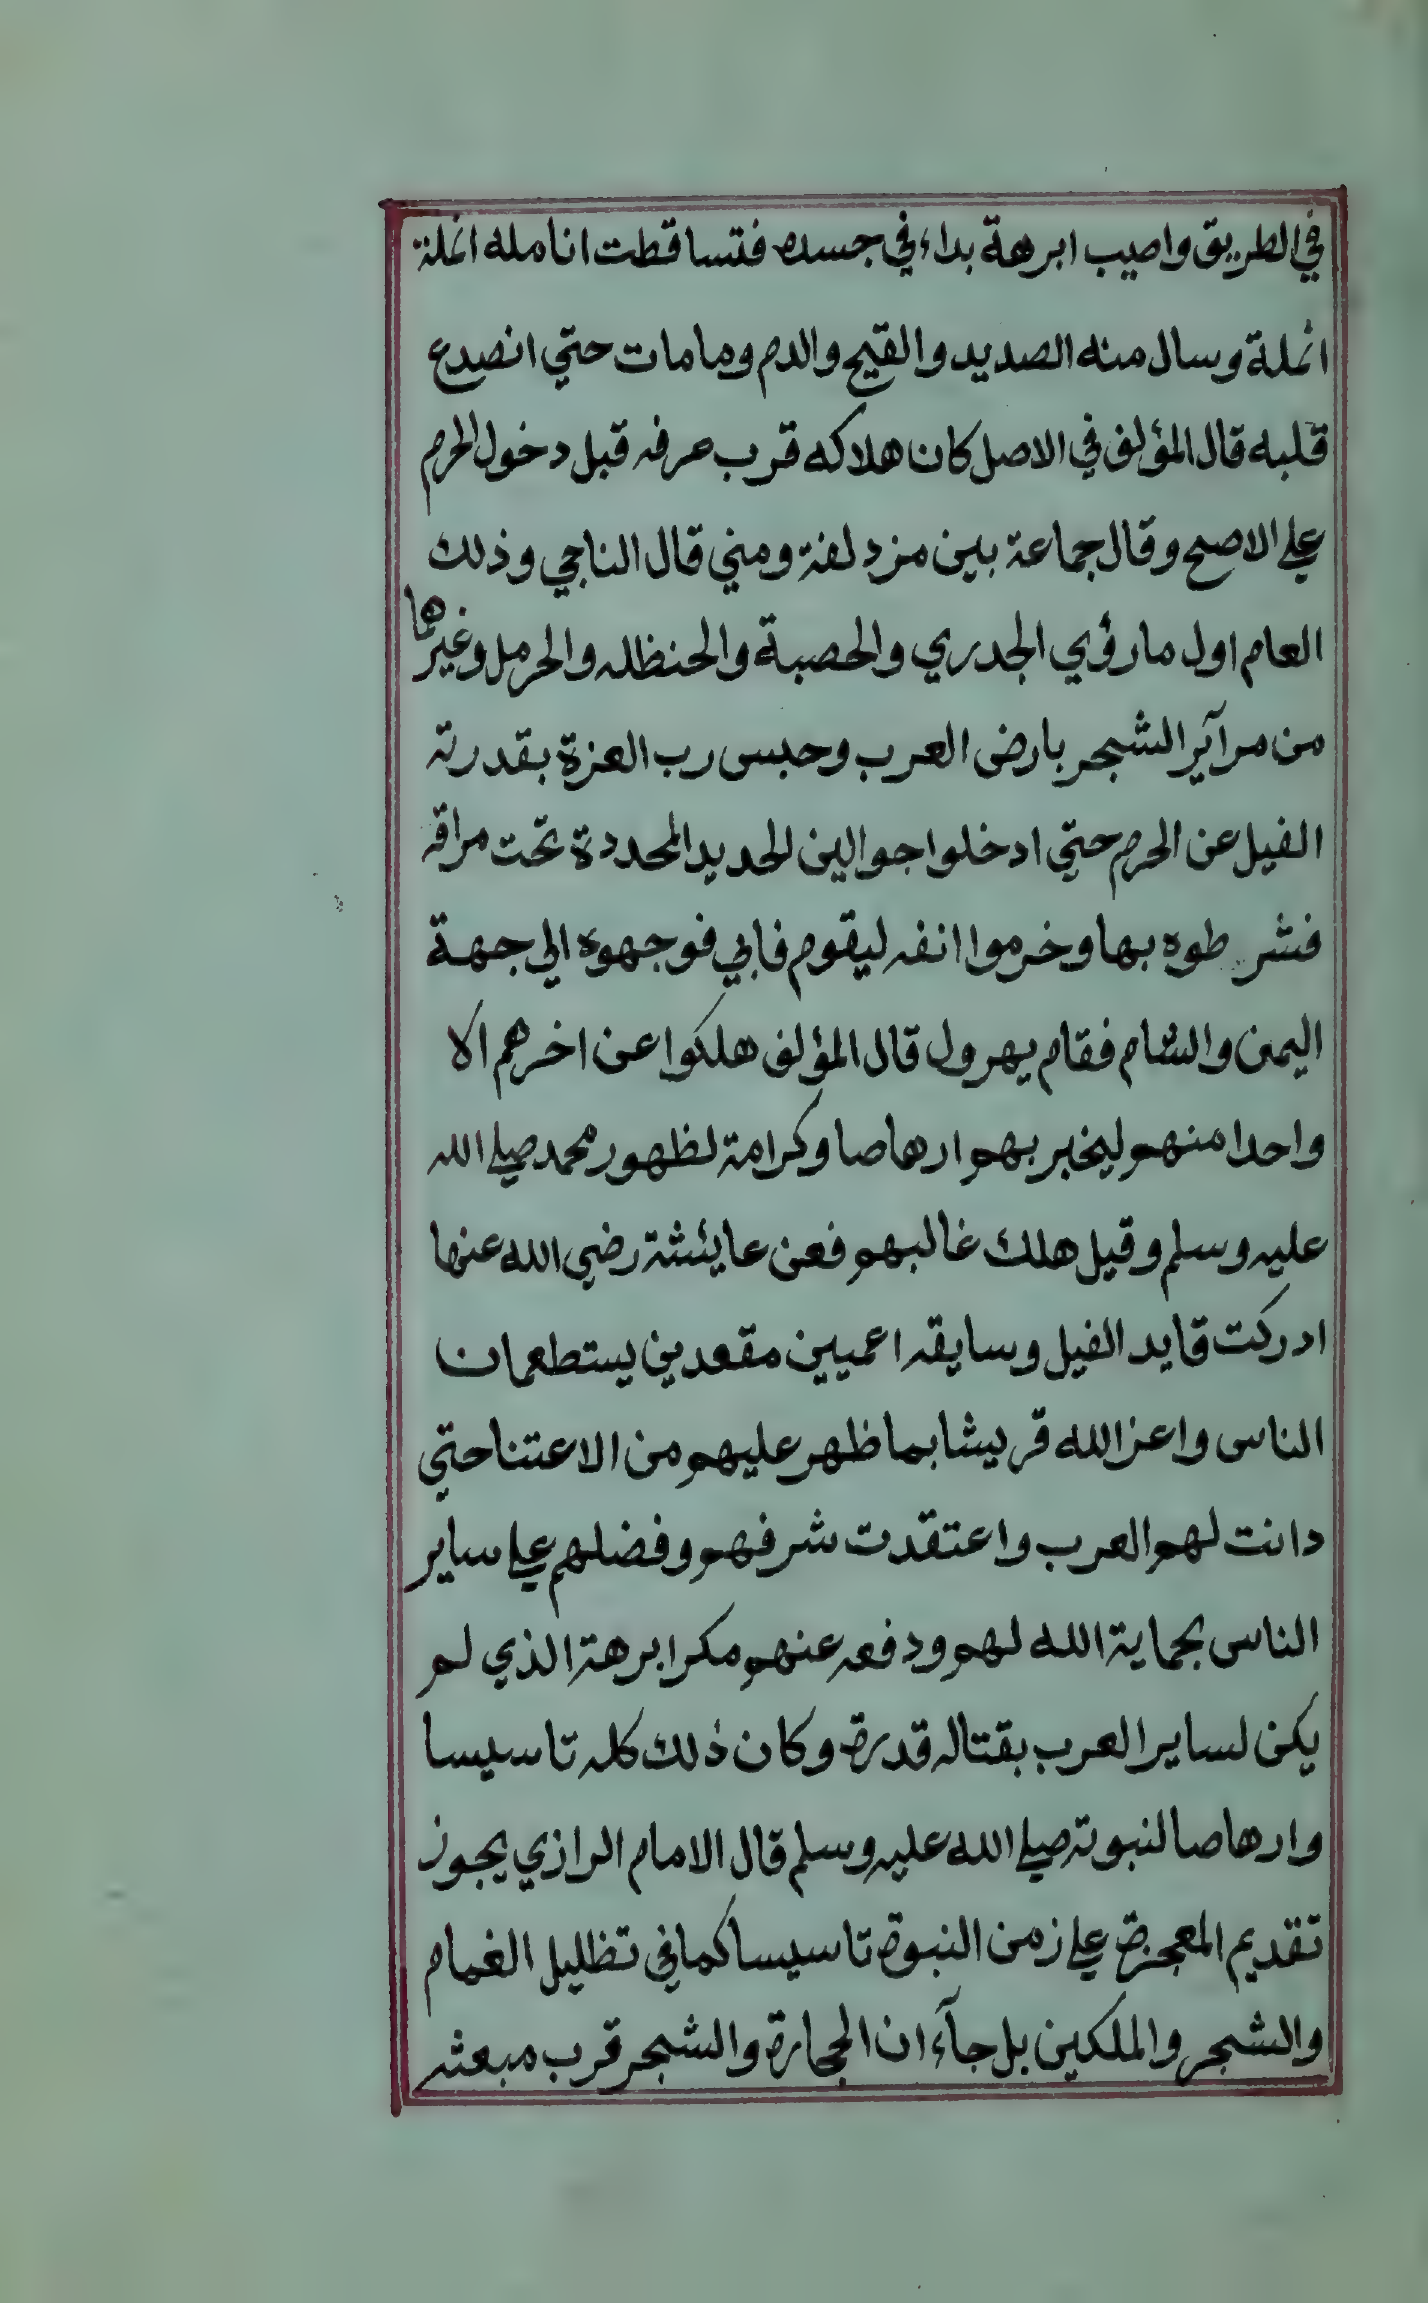 في الطريق واصيب ابرهة بداء في جسده فتساقطت انامله انملة
انملة وسال منه الصديد والقيح والدم وما مات حتي انصدع
قلبه قال المؤلف في الاصل كان هلاكه قرب عرفه قبل دخول الحرم
علي الاصح وقال جماعة بين مزدلفة ومني قال الناجي وذلك
العام اول ما رؤي الجدري والحصبة والحنظله والحرمل وغيرهما
من مرآئر الشجر بارض العرب وحبس رب العزة بقدرته
الفيل عن الحرم حتي ادخلوا جوالين الحديد المحددة تحت مراقه
فشرطوه بها وخرموا انفه ليقوم فابي فوجهوه الي جهة
اليمن والشام فقام يهرول قال المؤلف هلكوا عن اخرهم الا
واحدا منهم ليخبر بهم ارهاصا وكرامة لظهور محمد صلي الله
عليه وسلم وقيل هلك غالبهم فعن عايئشة رضي الله عنها
ادركت قايد الفيل وسايقه اعميين مقعدين يستطعمان
الناس واعز الله قريشا بما ظهر عليهم من الاعتنا حتي
دانت لهم العرب واعتقدت شرفهم وفضلهم علي ساير
الناس بحماية الله لهم ودفعه عنهم مكر ابرهة الذي لم
يكن لساير العرب بقتاله قدرة وكان ذلك كله تاسيسا
وارهاصا لنبوته صلي الله عليه وسلم قال الامام الرازي يجوز
تقديم المعجزة علي زمن النبوة تاسيسا كما في تظليل الغمام
والشجر والملكين بل جآء ان الحجارة والشجر قرب مبعثه